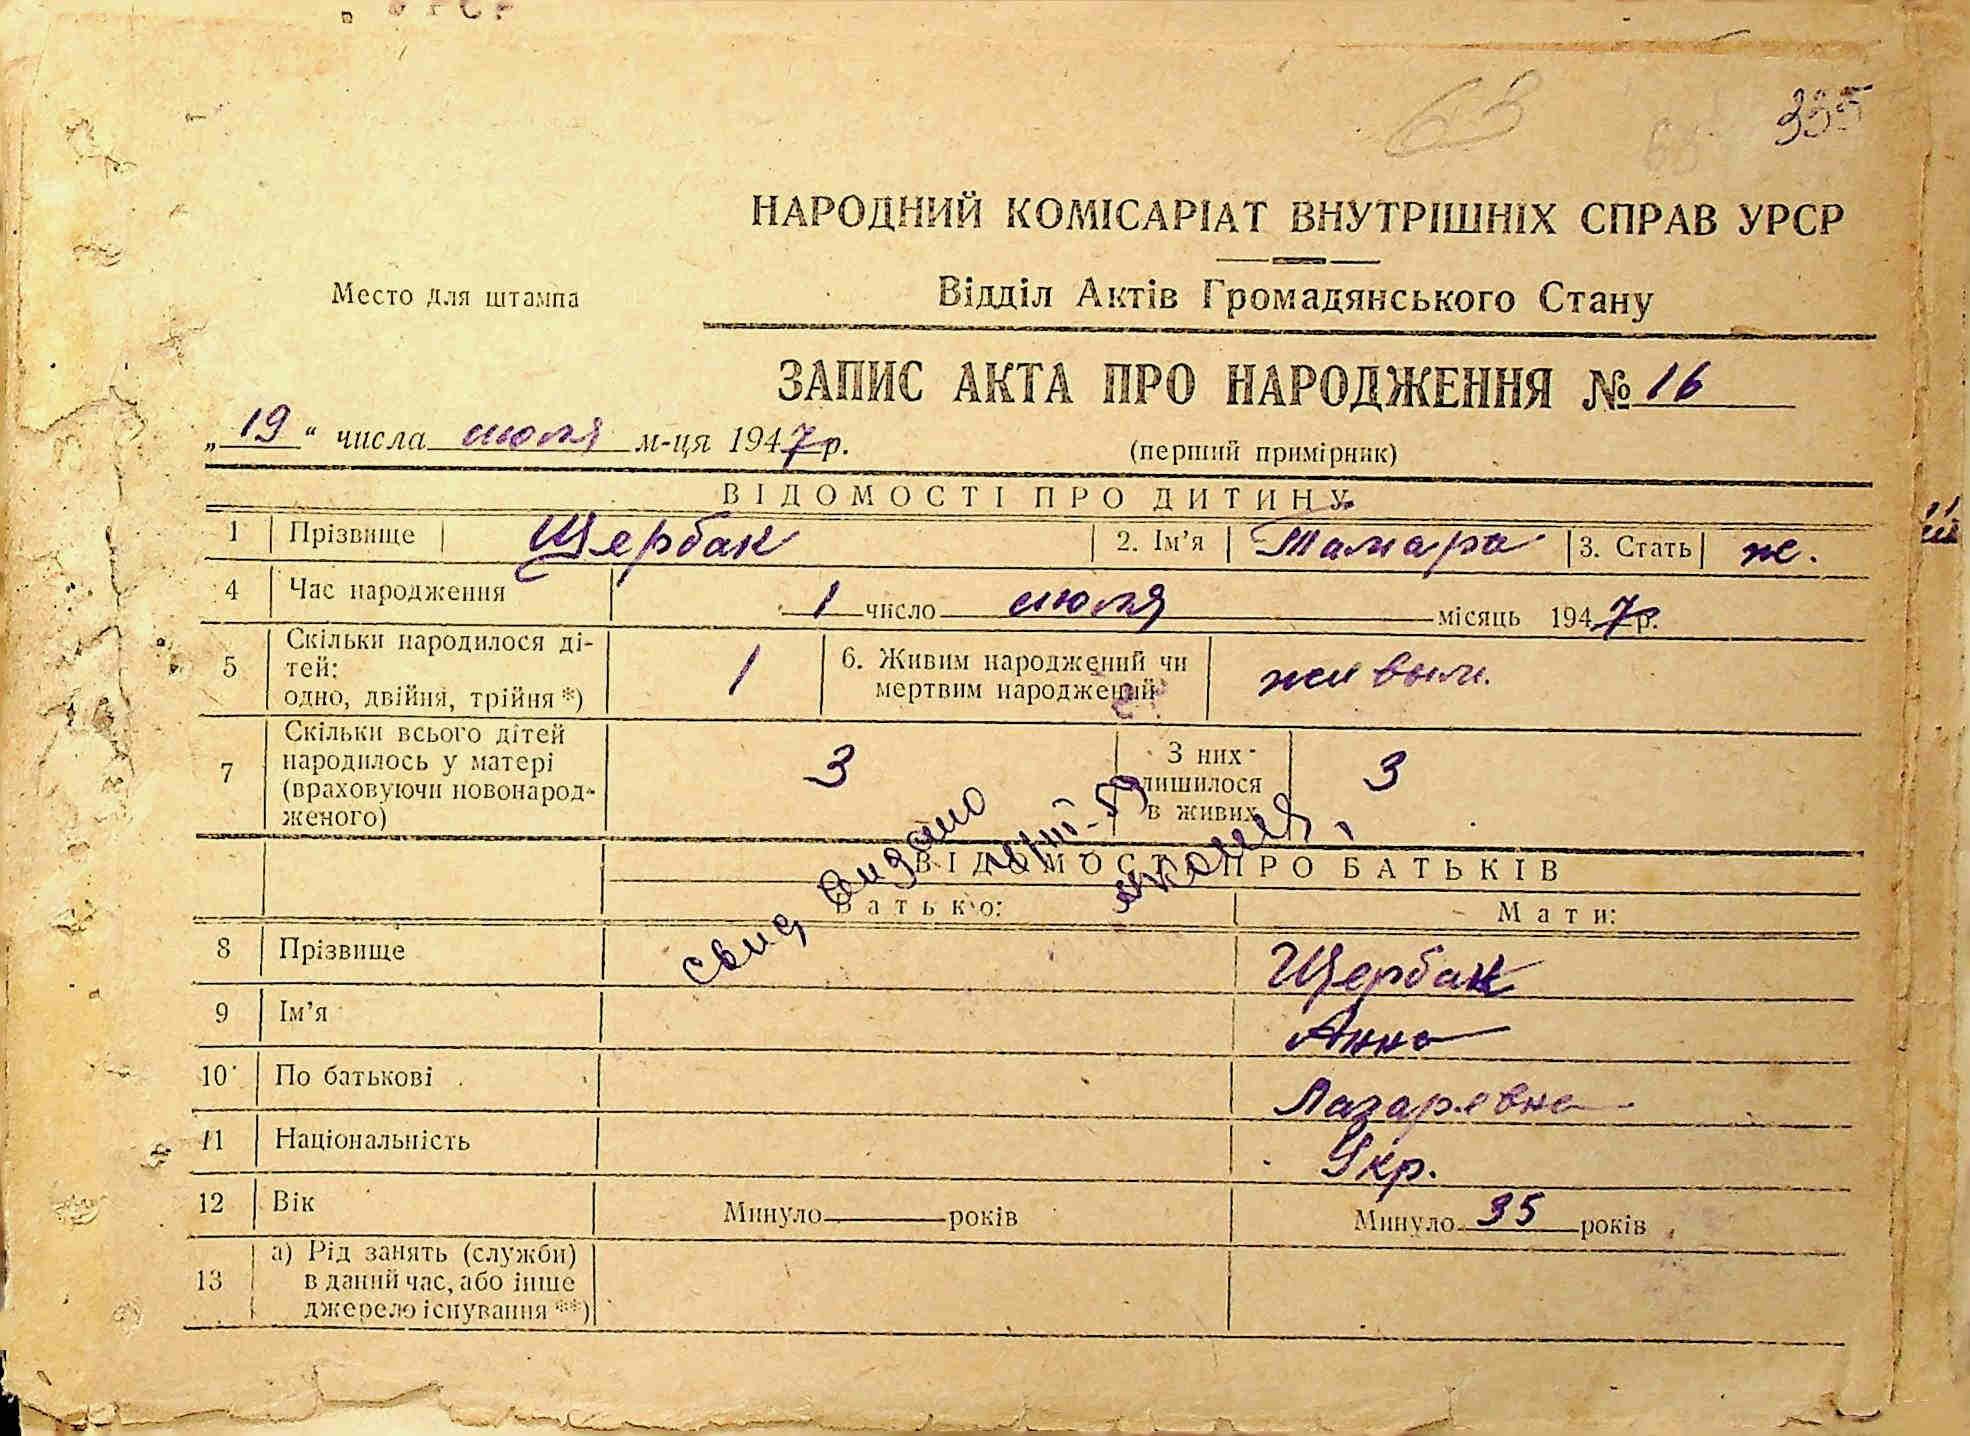 63 335
НАРОДНИЙ КОМІСАРІАТ ВНУТРІШНІХ СПРАВ УРСР
Место для штампа
Відділ Актів Громадянського Стану
ЗАПИС АКТА ПРО НАРОДЖЕННЯ № 16
„19“ числа июля м-ця 1947 р.
(перший примірник)
ВІДОМОСТІ ПРО ДИТИНУ
1 Прізвище Щербак 2. Ім’я Тамара 3. Стать ж.
4 Час народження 1 число июля місяць 1947 р.
5 Скільки народилося ді-
тей:
одно, двійня, трійня *) 1 6. Живим народжений чи
мертвим народжений живым.
7 Скільки всього дітей
народилось у матері
(враховуючи новонарод-
женого) 3 З них
лишилося
в живих 3
свид видано
ВІДОМОСТІ ПРО БАТЬКІВ
Батько: Мати:
8 Прізвище Щербак
9 Ім’я Анна
10 По батькові Лазаревна
11 Національність Укр.
12 Вік Минуло років Минуло 35 років
13 а) Рід занять (служби)
в даний час, або інше
джерело існування **)